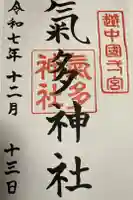 越中國一宮
氣多神社
氣多神社
令和七年十二月十三日